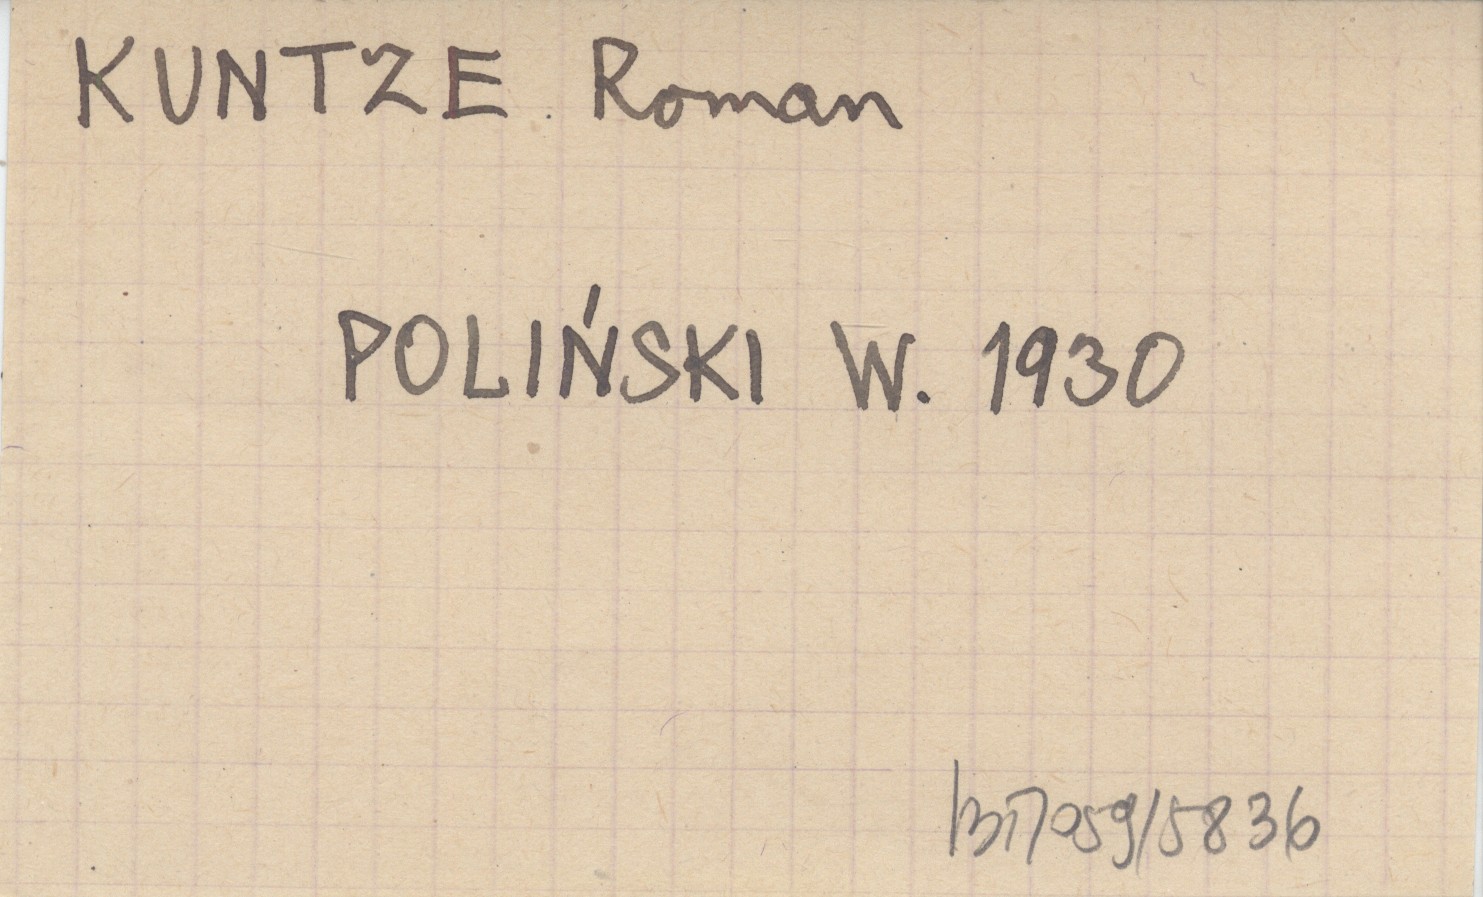 KUNTZE Roman
POLIŃSKI W. 1930
/5836